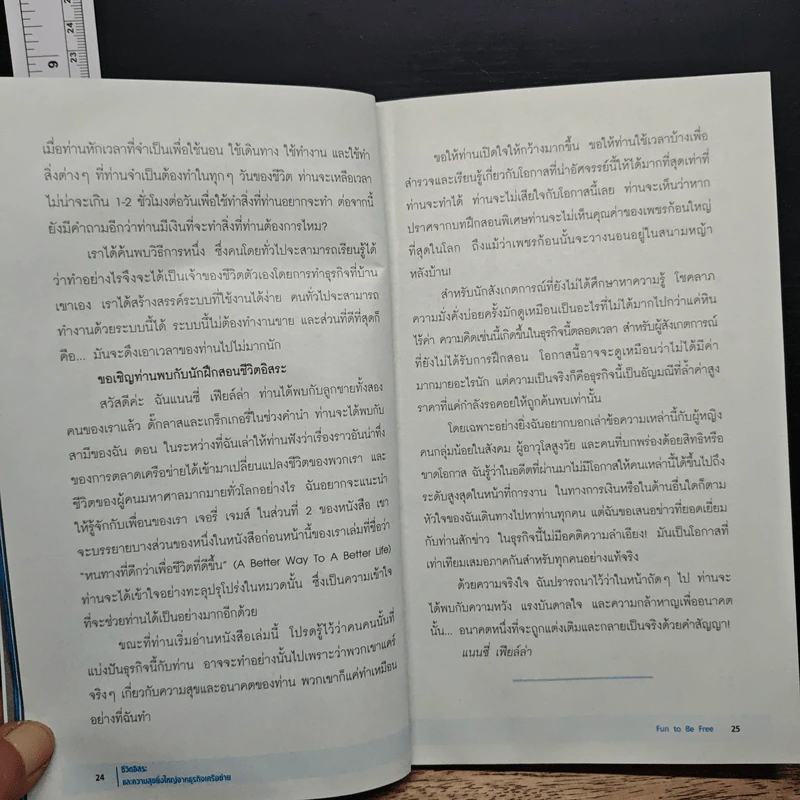 9
23
24
เมื่อท่านหักเวลาที่จำเป็นเพื่อใช้นอน ใช้เดินทาง ใช้ทำงาน และใช้ทำ
สิ่งต่างๆ ที่ท่านจำเป็นต้องทำในทุกๆ วันของชีวิต ท่านจะเหลือเวลา
ไม่น่าจะเกิน 1-2 ชั่วโมงต่อวันเพื่อใช้ทำสิ่งที่ท่านอยากจะทำ ต่อจากนี้
ยังมีคำถามอีกว่าท่านมีเงินที่จะทำสิ่งที่ท่านต้องการไหม?
เราได้ค้นพบวิธีการหนึ่ง ซึ่งคนโดยทั่วไปจะสามารถเรียนรู้ได้
ว่าทำอย่างไรจึงจะได้เป็นเจ้าของชีวิตตัวเองโดยการทำธุรกิจที่บ้าน
เขาเอง เราได้สร้างสรรค์ระบบที่ใช้งานได้ง่าย คนทั่วไปจะสามารถ
ทำงานด้วยระบบนี้ได้ ระบบนี้ไม่ต้องทำงานขาย และส่วนที่ดีที่สุดก็
คือ... มันจะดึงเอาเวลาของท่านไปไม่มากนัก
ขอเชิญท่านพบกับนักฝึกสอนชีวิตอิสระ
สวัสดีค่ะ ฉันแนนซี่ เฟียล์ล่า ท่านได้พบกับลูกชายทั้งสอง
คนของเราแล้ว ดั๊กลาสและเกร็กเกอรี่ในช่วงคำนำ ท่านจะได้พบกับ
สามีของฉัน ดอน ในระหว่างที่ฉันเล่าให้ท่านฟังว่าเรื่องราวอันน่าทึ่ง
ของการตลาดเครือข่ายได้เข้ามาเปลี่ยนแปลงชีวิตของพวกเรา และ
ชีวิตของผู้คนมหาศาลมากมายทั่วโลกอย่างไร ฉันอยากจะแนะนำ
ให้รู้จักกับเพื่อนของเรา เจอรี่ เจมส์ ในส่วนที่ 2 ของหนังสือ เขา
จะบรรยายบางส่วนของหนึ่งในหนังสือก่อนหน้านี้ของเราเล่มที่ชื่อว่า
"หนทางที่ดีกว่าเพื่อชีวิตที่ดีขึ้น" (A Better Way To A Better Life)
ท่านจะได้เข้าใจอย่างทะลุปรุโปร่งในหมวดนั้น ซึ่งเป็นความเข้าใจ
ที่จะช่วยท่านได้เป็นอย่างมากอีกด้วย
ขณะที่ท่านเริ่มอ่านหนังสือเล่มนี้ โปรดรู้ไว้ว่าคนคนนั้นที่
แบ่งปันธุรกิจนี้กับท่าน อาจจะทำอย่างนั้นไปเพราะว่าพวกเขาแคร์
จริงๆ เกี่ยวกับความสุขและอนาคตของท่าน พวกเขาก็แค่ทำเหมือน
อย่างที่ฉันทำ
24
ชีวิตอิสระ
และความสุขยิ่งใหญ่จากธุรกิจเครือข่าย
ขอให้ท่านเปิดใจให้กว้างมากขึ้น ขอให้ท่านใช้เวลาบ้างเพื่อ
สำรวจและเรียนรู้เกี่ยวกับโอกาสที่น่าอัศจรรย์นี้ให้ได้มากที่สุดเท่าที่
ท่านจะทำได้ ท่านจะไม่เสียใจกับโอกาสนี้เลย ท่านจะเห็นว่าหาก
ปราศจากบทฝึกสอนพิเศษท่านจะไม่เห็นคุณค่าของเพชรก้อนใหญ่
ที่สุดในโลก ถึงแม้ว่าเพชรก้อนนั้นจะวางนอนอยู่ในสนามหญ้า
หลังบ้าน!
สำหรับนักสังเกตการณ์ที่ยังไม่ได้ศึกษาหาความรู้ โชคลาภ
ความมั่งคั่งบ่อยครั้งมักดูเหมือนเป็นอะไรที่ไม่ได้มากไปกว่าแค่หิน
ไร้ค่า ความคิดเช่นนี้เกิดขึ้นในธุรกิจนี้ตลอดเวลา สำหรับผู้สังเกตการณ์
ที่ยังไม่ได้รับการฝึกสอน โอกาสนี้อาจจะดูเหมือนว่าไม่ได้มีค่า
มากมายอะไรนัก แต่ความเป็นจริงก็คือธุรกิจนี้เป็นอัญมณีที่ล้ำค่าสูง
ราคาที่แค่กำลังรอคอยให้ถูกค้นพบเท่านั้น
โดยเฉพาะอย่างยิ่งฉันอยากบอกเล่าข้อความเหล่านี้กับผู้หญิง
คนกลุ่มน้อยในสังคม ผู้อาวุโสสูงวัย และคนที่บกพร่องด้วยสิทธิหรือ
ขาดโอกาส ฉันรู้ว่าในอดีตที่ผ่านมาไม่มีโอกาสให้คนเหล่านี้ได้ขึ้นไปถึง
ระดับสูงสุดในหน้าที่การงาน ในทางการเงินหรือในด้านอื่นใดก็ตาม
หัวใจของฉันเดินทางไปหาท่านทุกคน แต่ฉันขอเสนอข่าวที่ยอดเยี่ยม
กับท่านสักข่าว ในธุรกิจนี้ไม่มีอคติความลำเอียง! มันเป็นโอกาสที่
เท่าเทียมเสมอภาคกันสำหรับทุกคนอย่างแท้จริง
ด้วยความจริงใจ ฉันปรารถนาไว้ว่าในหน้าถัดๆ ไป ท่านจะ
ได้พบกับความหวัง แรงบันดาลใจ และความกล้าหาญเพื่ออนาคต
นั้น... อนาคตหนึ่งที่จะถูกแต่งเติมและกลายเป็นจริงด้วยคำสัญญา!
แนนซี่ เฟียล์ล่า
Fun to Be Free 25